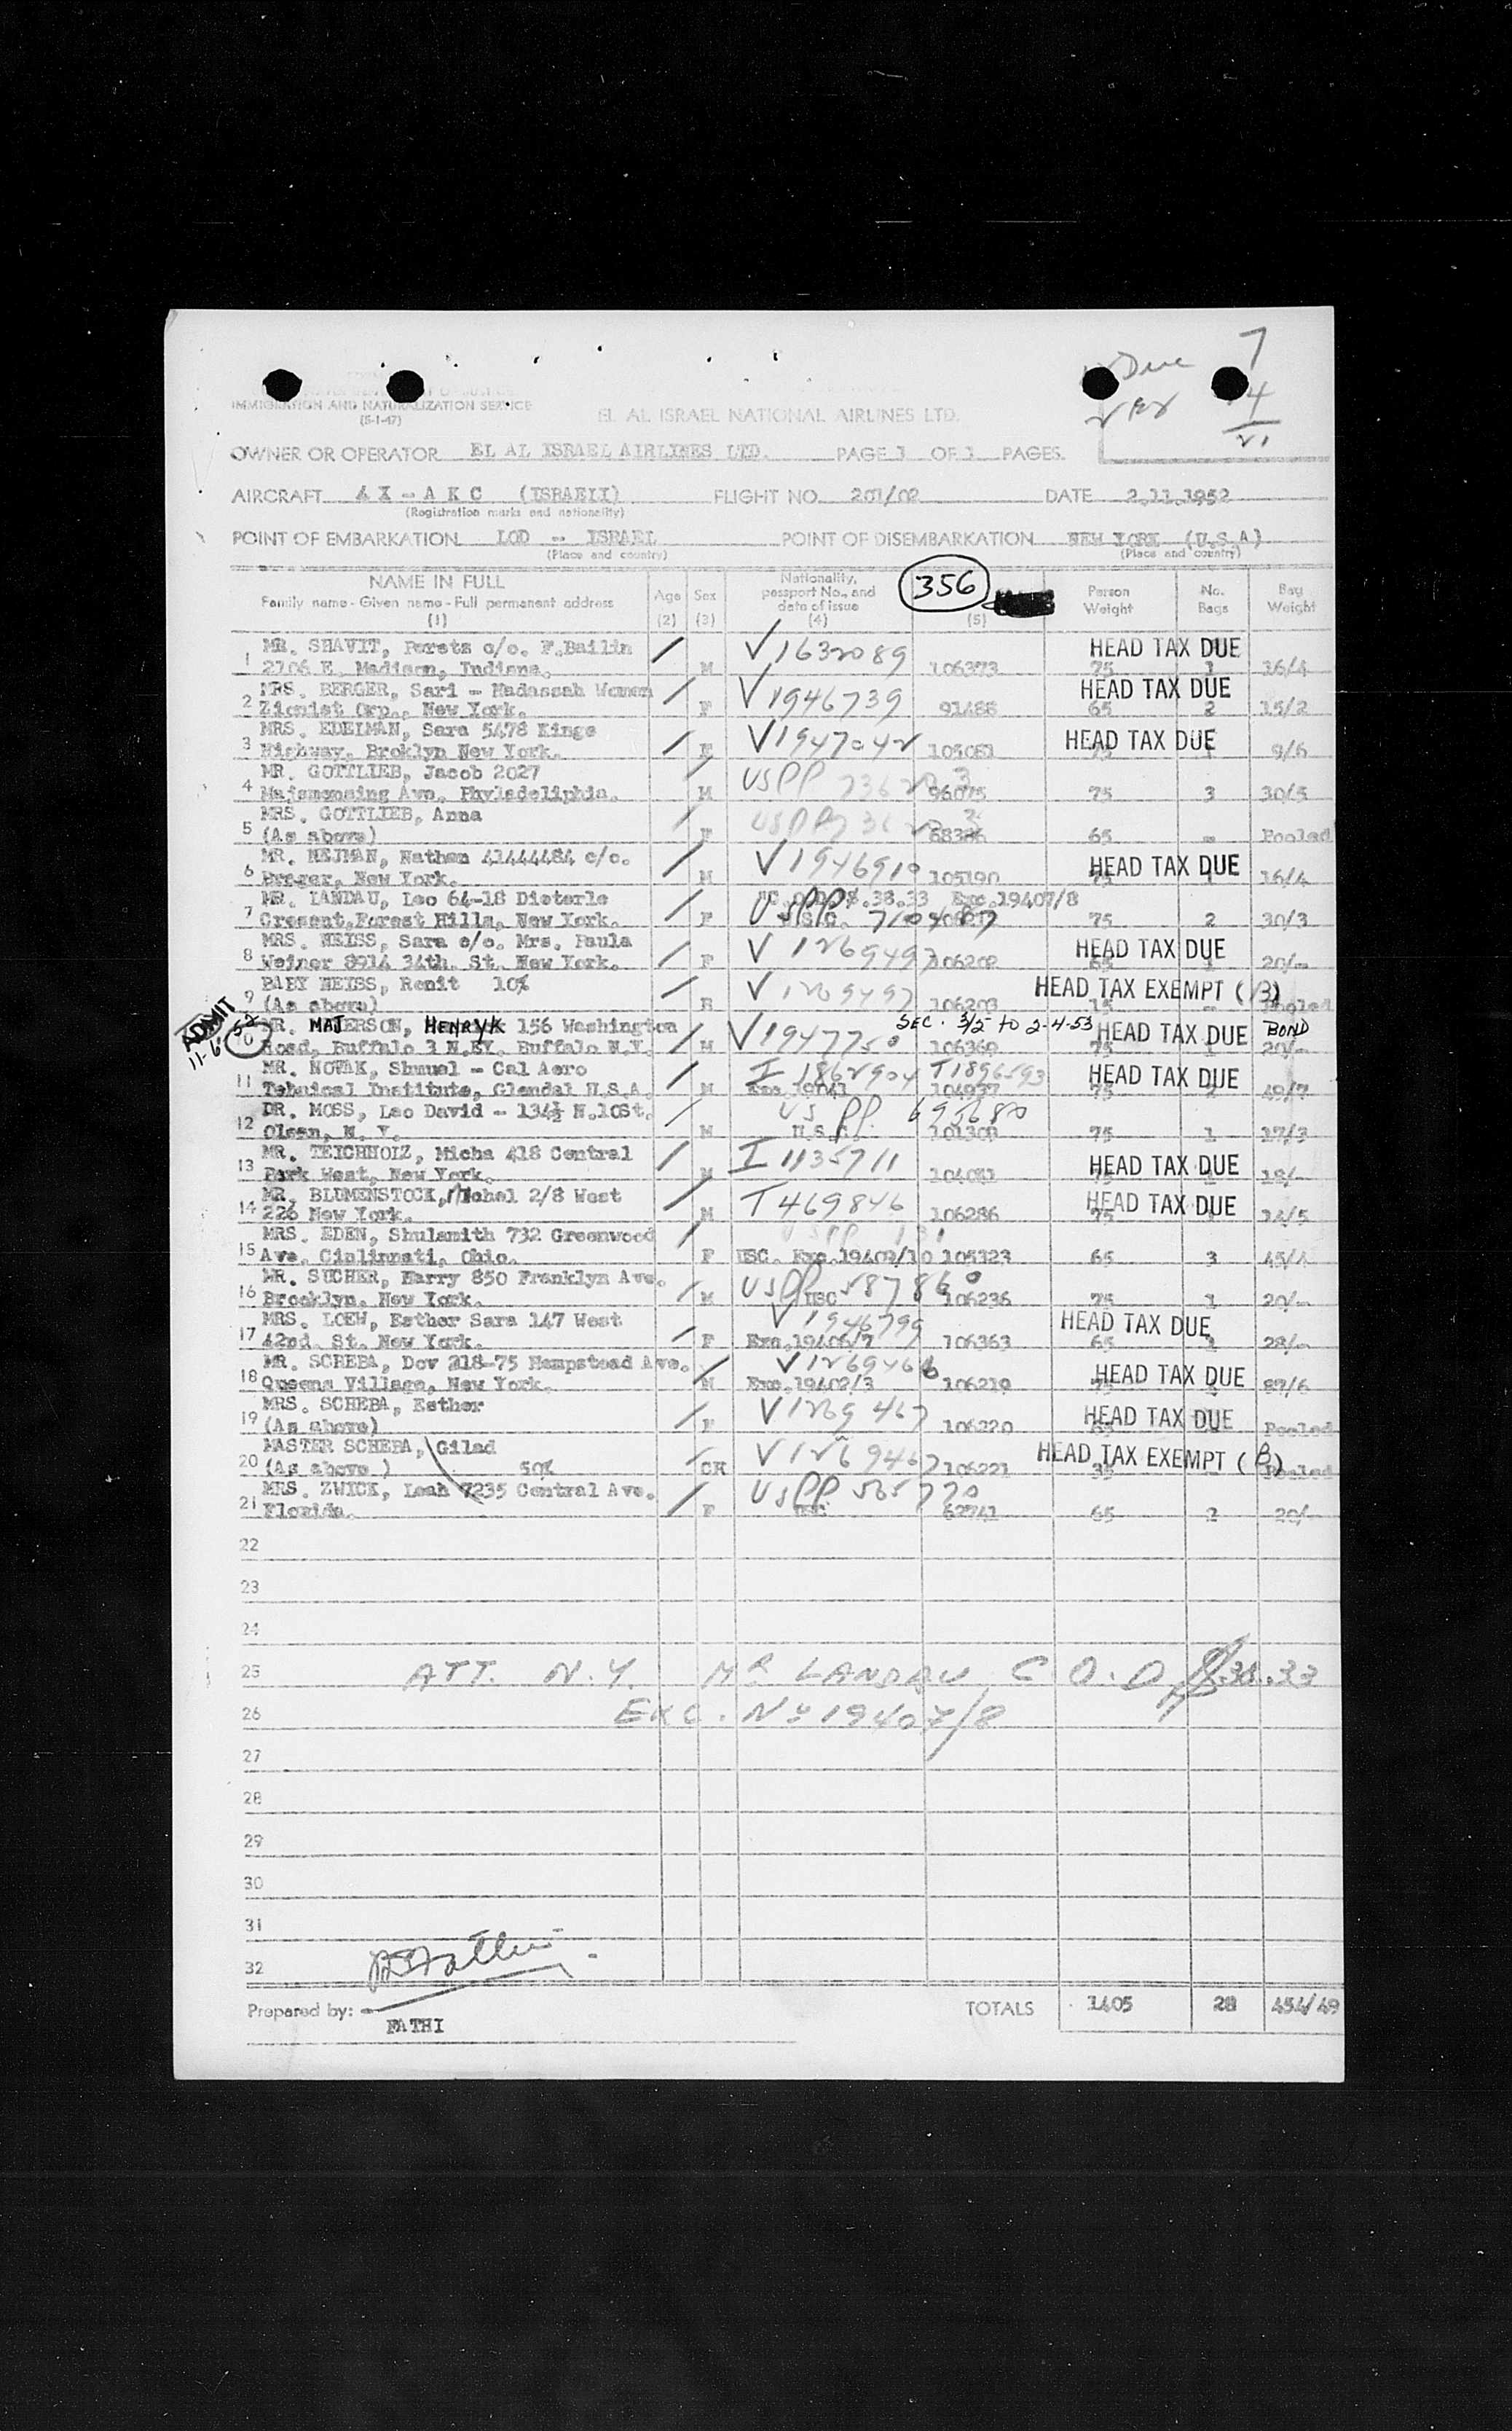 7
Due
4
21
IMMIGRATION AND NATURALIZATION SERVICE
(5-1-47)
EL AL ISRAEL NATIONAL AIRLINES LTD.
OWNER OR OPERATOR EL AL ISRAEL AIRLINES LTD. PAGE 1 OF 1 PAGES.
AIRCRAFT 4 X - A K C (ISRAELI) FLIGHT NO. 201/02 DATE 2.11.1952
(Registration marks and nationality)
POINT OF EMBARKATION LOD -- ISRAEL POINT OF DISEMBARKATION NEW YORK (U.S.A)
(Place and country) (Place and country)
NAME IN FULL
Family name - Given name - Full permanent address
(1)
Age
(2)
Sex
(3)
Nationality,
passport No., and
date of issue
(4)
356
(5)
Person
Weight
No.
Bags
Bag
Weight
MR. SHAVIT, Perets c/o. F.Bailin V1632089 HEAD TAX DUE
1 2706 E. Madison, Indiana. M 106373 75 1 16/4
MRS. BERGER, Sari - Hadassah Women V1946739 HEAD TAX DUE
2 Zionist Orp., New York. F 91488 65 2 15/2
MRS. EDELMAN, Sara 5478 Kings V1947042 HEAD TAX DUE
3 Highway, Broklyn New York. F 105081 9/6
MR. GOTTLIEB, Jacob 2027 USPP
4 Ave. Phyladeliphia. M 96075 75 3 30/5
MRS. GOTTLIEB, Anna USPP
5 (As above) F 65 - Pooled
MR. NEJMAN, Nathan 41444484 c/o. V1946910 HEAD TAX DUE
6 Preger, New York. M 105190 16/4
MR. LANDAU, Leo 64-18 Dieterle .38.33 Exc.19407/8
7 Cresent,Forest Hills, New York. F USPP 75 2 30/3
MRS. NEISS, Sara c/o. Mrs. Paula V 1269497 HEAD TAX DUE
8 Wejner 8914 34th. St. New York. F 106202 65 1 20/-
BABY NEISS, Ronit 10% V 1269497 HEAD TAX EXEMPT (B)
9 (As above) 106203 15 - Pooled
ADMIT
11-6-52
MR. MAJERSON, HENRYK 156 Washington V1947750 SEC. 3/5 TO 2-4-53 HEAD TAX DUE BOND
10 Road, Buffalo 3 N.EY. Buffalo N.Y. M 106369 75 1 20/-
MR. NOWAK, Shmuel - Cal Aero I 1862904 T1896593 HEAD TAX DUE
11 Tehnical Institute, Glendal U.S.A. M Exc.19041 104937 75 2 49/7
DR. MOSS, Leo David - 134½ N.10St. US PP. 695680
12 Olean, N. Y. M U.S.C. 101308 75 1 17/3
MR. TEICHHOLZ, Micha 418 Central I 1135711 HEAD TAX DUE
13 Park West, New York. M 104081 18/-
MR. BLUMENSTOCK, Mechel 2/8 West T 469846 HEAD TAX DUE
14 226 New York. M 106286 75 14/5
MRS. EDEN, Shulamith 732 Greenwood
15 Ave. Cinlinnati, Ohio. F USC. Exc.19409/10 105323 65 3 45/4
MR. SUCHER, Harry 850 Franklyn Ave. USPP 587860
16 Brooklyn. New York. M USC 106236 75 1 20/-
MRS. LOEW, Esther Sara 147 West V 1946799 HEAD TAX DUE
17 42nd. St. New York. F Exc.19406/7 106363 65 28/-
MR. SCHEBA, Dov 218-75 Hempstead Ave. V1269466 HEAD TAX DUE
18 Queens Village, New York. M Exc.19402/3 106219 75 87/6
MRS. SCHEBA, Esther V1269467 HEAD TAX DUE
19 (As above) F 106220 65 Pooled
MASTER SCHEBA, Gilad V1269467 HEAD TAX EXEMPT (B)
20 (As above ) 50% CH 106221 35 Pooled
MRS. ZWICK, Leah 7235 Central Ave. USPP 565770
21 Florida. F USC 62741 65 2 20/-
22
23
24
25 ATT. N.Y. MR LANDAU C.O.D $.38.33
26 EXC. No 19407/8
27
28
29
30
31
32
Prepared by:
FATHI
TOTALS 1405 28 454/49